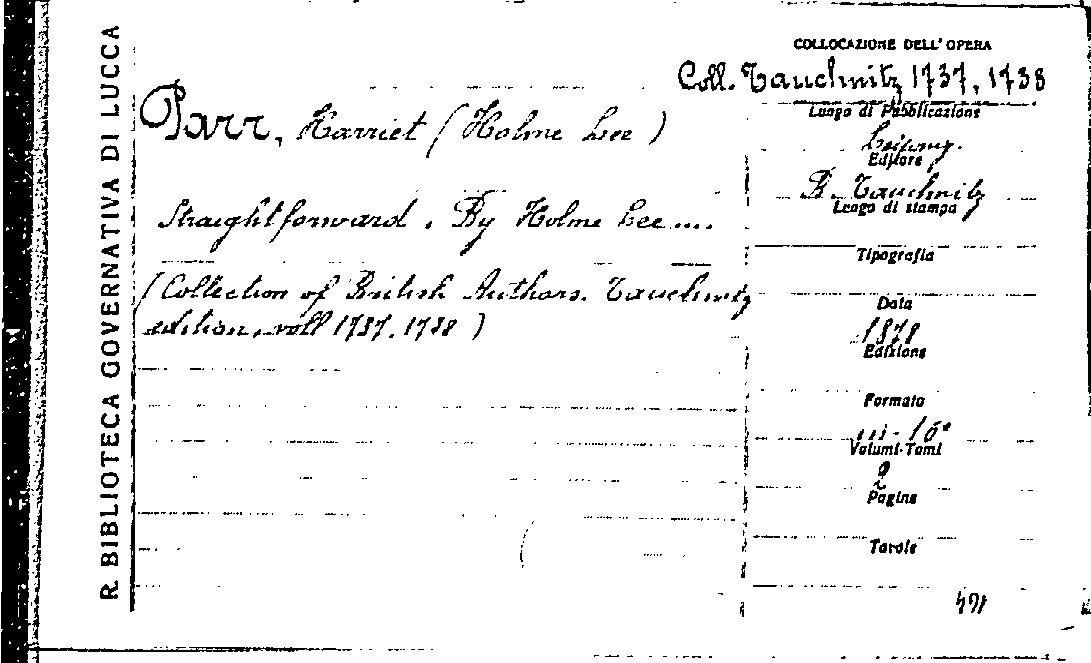 R. BIBLIOTECA GOVERNATIVA DI LUCCA
Parr, Harriet (Holme Lee)
Straightforward. By Holme Lee....
(Collection of British Authors. Tauchnitz
edition, voll 1737. 1738)
COLLOCAZIONE DELL'OPERA
Coll. Tauchnitz 1737, 1738
Luogo di Pubblicazione
Leipzig.
Editore
B. Tauchnitz
Luogo di stampa
Tipografia
Data
1878
Edizione
Formato
in-16°
Volumi-Tomi
2
Pagine
Tavole